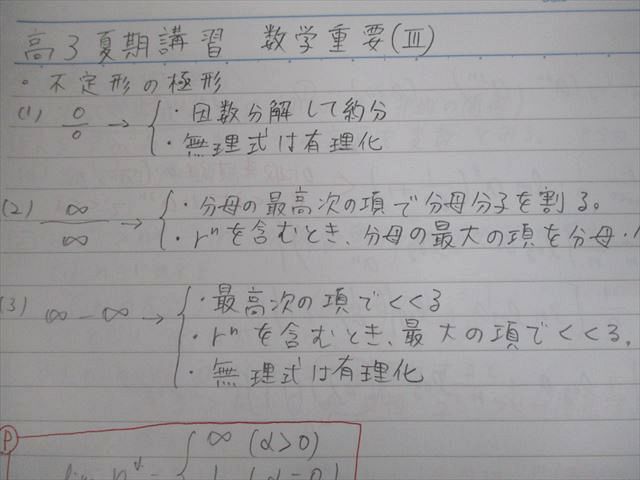 高3夏期講習 数学重要(Ⅲ)
・不定形の極形
(1) 0/0 → { ・因数分解して約分
・無理式は有理化
(2) ∞/∞ → { ・分母の最高次の項で分母分子を割る。
・rⁿを含むとき、分母の最大の項を分母・
(3) ∞-∞ → { ・最高次の項でくくる
・rⁿを含むとき、最大の項でくくる。
・無理式は有理化
Ⓟ
∞ (α>0)
lim n^α = { 1 (α=0)